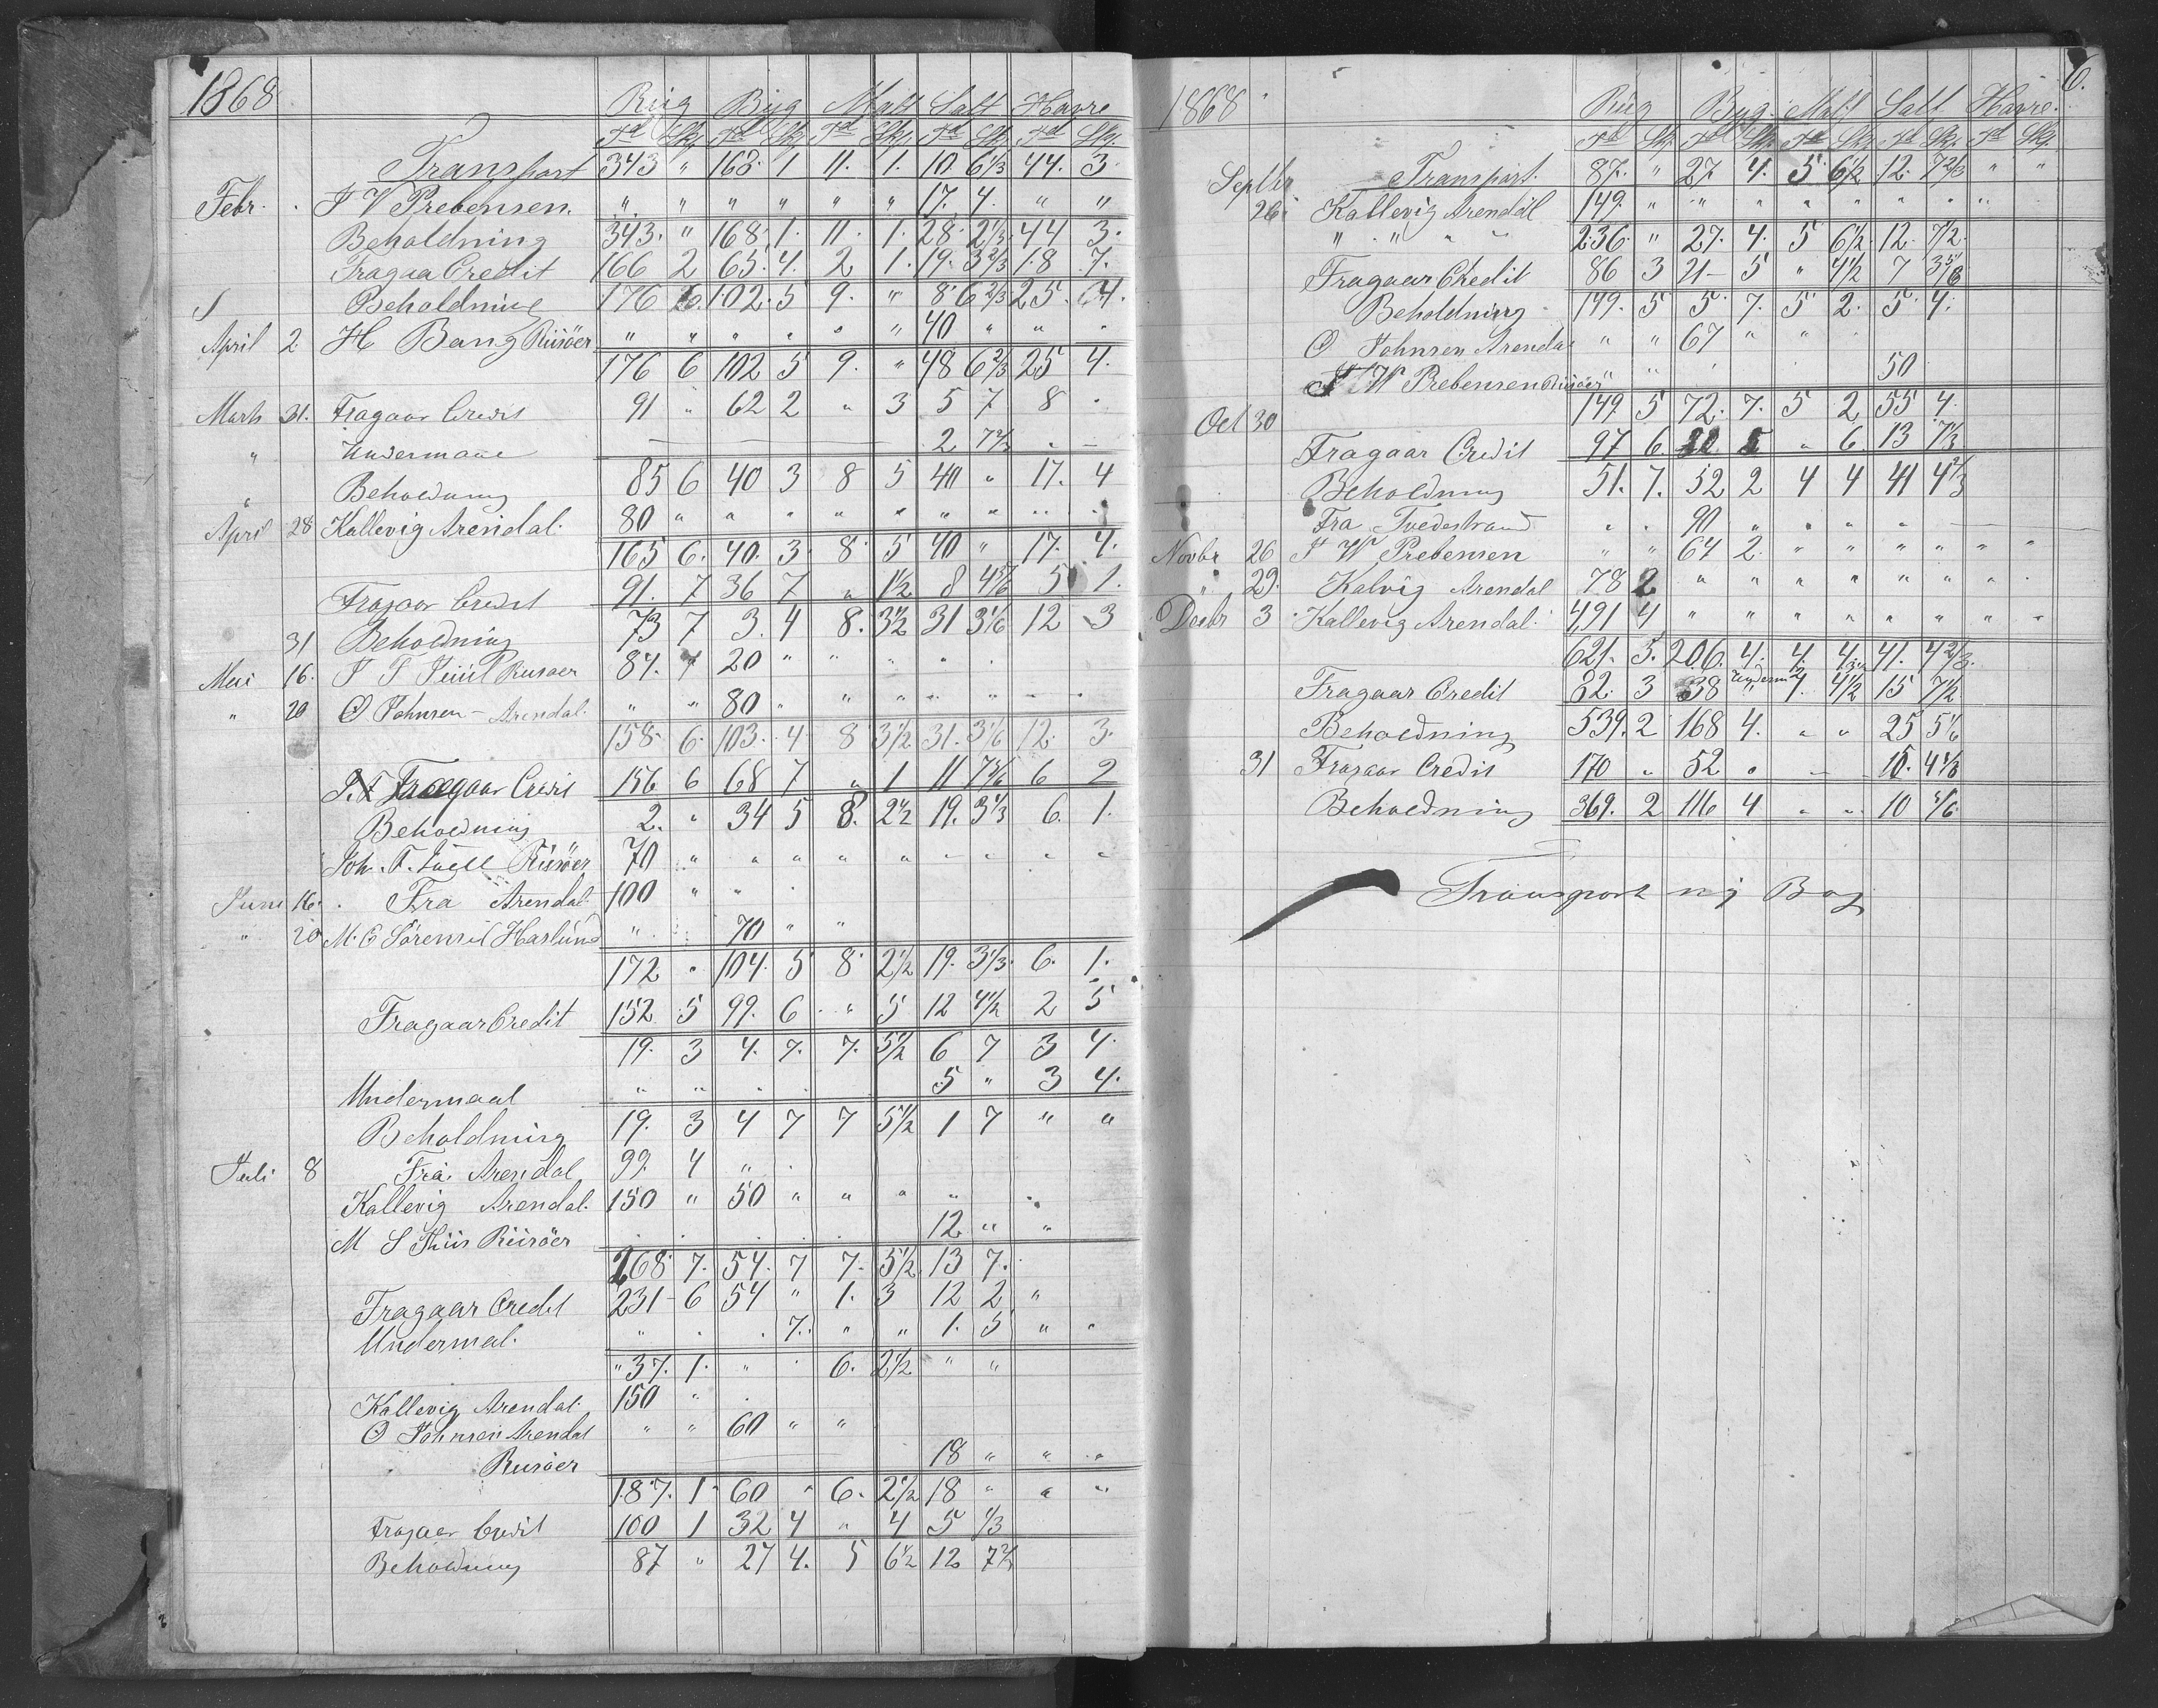 1868
Rug Byg Malt Salt Havre
Td Skj. Td Skj. Td Skj. Td Skj. Td Skj.
Transport 343 " 168. 1 11. 1. 10. 6 1/3 44. 3.
Febr. J W Prebensen. " " " " " " 17. 4. " "
Beholdning 343. " 168. 1. 11. 1. 28. 2 1/3. 44 3.
Fragaa Credit 166 2 65. 4. 2 1. 19. 3 2/3 18 7.
Beholdning 176 6. 102. 5 9. " 8 6 2/3 25. 4.
April 2. H Bang Riisöer " " " " " " 40 " " "
176 6 102 5 9. " 48 6 2/3 25 4.
Marts 31. Fragaar Credit 91 " 62 2 " 3 5 7 8 "
" Undermaal 2 7 2/3 " -
" Beholdning 85 6 40 3 8 5 40 " 17. 4
April 28 Kallevig Arendal. 80 " " " " " " " " "
165 6. 40. 3 8. 5 40 " 17. 4.
Fragaar Credit 91. 7 36 7 " 1 1/2 8 4 5/6 5 1.
31 Beholdning 73 7 3. 4 8. 3 1/2 31 3 1/6 12 3
Mai 16. J T Juul Riisoer 84. 7 20 " " " "
" 20 O Johnsen - Arendal. " " 80 " " " " " " "
158. 6. 103. 4. 8 3 1/2 31. 3 1/6 12. 3.
Fragaar Credit 156 6 68 7 " 1 11 7 5/6 6 2
Beholdning 2. " 34 5 8. 2 1/2 19. 3 1/3 6. 1.
Joh. T. Juell Riisöer 70 " " " " " " " " "
Juni 16. Fra Arendal. 100 " " "
" 20 M. C Sörensen Haslund " " 70 " "
172 " 104. 5 8. 2 1/2 19. 3 1/3. 6. 1.
Fragaar Credit 152 5 99. 6 " 5 12 4 1/2 2 5
19. 3 4. 7. 7. 5 1/2 6 7 3 4.
Undermaal " " " 5 " 3 4.
Beholdning 19. 3 4 7 7 5 1/2 1 7 " "
Juli 8 Fra Arendal 99. 4 " "
Kallevig Arendal. 150 " 50 " " " "
M S Thiis Riisöer 12. " "
268 7. 54. 7 7. 5 1/2 13 7.
Fragaar Credit 231 - 6 54 " 1. 3 12 2 "
Undermal. " " " 7. " " 1. 5 " "
" 37. 1. " " 6. 2 1/2 " "
Kallevig Arendal. 150 " "
O Johnsen Arendal " " 60 " "
Risöer 18 " " "
187. 1. 60 " 6. 2 1/2 18 " " "
Fragaar Credit 100 1 32 4 " 4 5 1/3
Beholdning 87 " 27 4. 5 6 1/2 12 7 2/3
6.
1868
Rug Byg Malt Salt Havre.
Td Skj. Td Skj. Td Skj. Td Skj. Td Skj.
Transport. 87. " 27 4. 5 6 1/2 12. 7 2/3 " "
Septbr 26. Kallevig Arendal 149. " " " " " " " " "
" " " " 236. " 27. 4. 5 6 1/2. 12. 7/2.
Fragaar Credit 86 3 21 - 5 " 4 1/2 7 3 5/6
Beholdning 149. 5 5. 7. 5 2. 5. 4.
O Johnsen Arendal " " 67 " "
J W Prebensen Riisöer " " 50
149. 5 72. 7. 5 2 55 4.
Oct 30 Fragaar Credit 97 6. 20 5 " 6. 13 7 1/3
Beholdning 51. 7. 52 2 4 4 41 4 2/3
Fra Tvedestrand " " 90 " " " "
Novbr 26 J W Prebensen " " 64 2. " " " " " "
" 29. Kalvig Arendal 78 2 " " " " " " "
Decbr 3 Kallevig Arendal. 491 4 " " " " " " " "
621. 5. 206. 4. 4. 4. 41. 4 2/3.
Underm
Fragaar Credit 82. 3 38 " 4. 4 1/2 15 7 1/2.
Beholdning 539. 2 168 4. " " 25 5/6
31 Fragaar Credit 170 " 52 " - 15. 4 1/3
Beholdning 369. 2 116 4 " " 10 5/6
Transport ny Bog